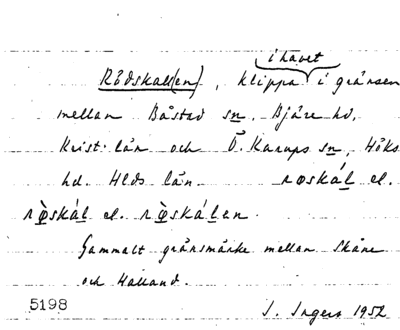 i havet
Rödskall(en), klippa i gränsen
mellan Båstad sn, Bjäre hd,
Krist. län och Ö. Karups sn, Höks
hd. Hlds län. røskál el.
rø̀skál el. rø̀skálen.
Gammalt gränsmärke mellan Skåne
och Halland.
5198
I. Ingers 1952